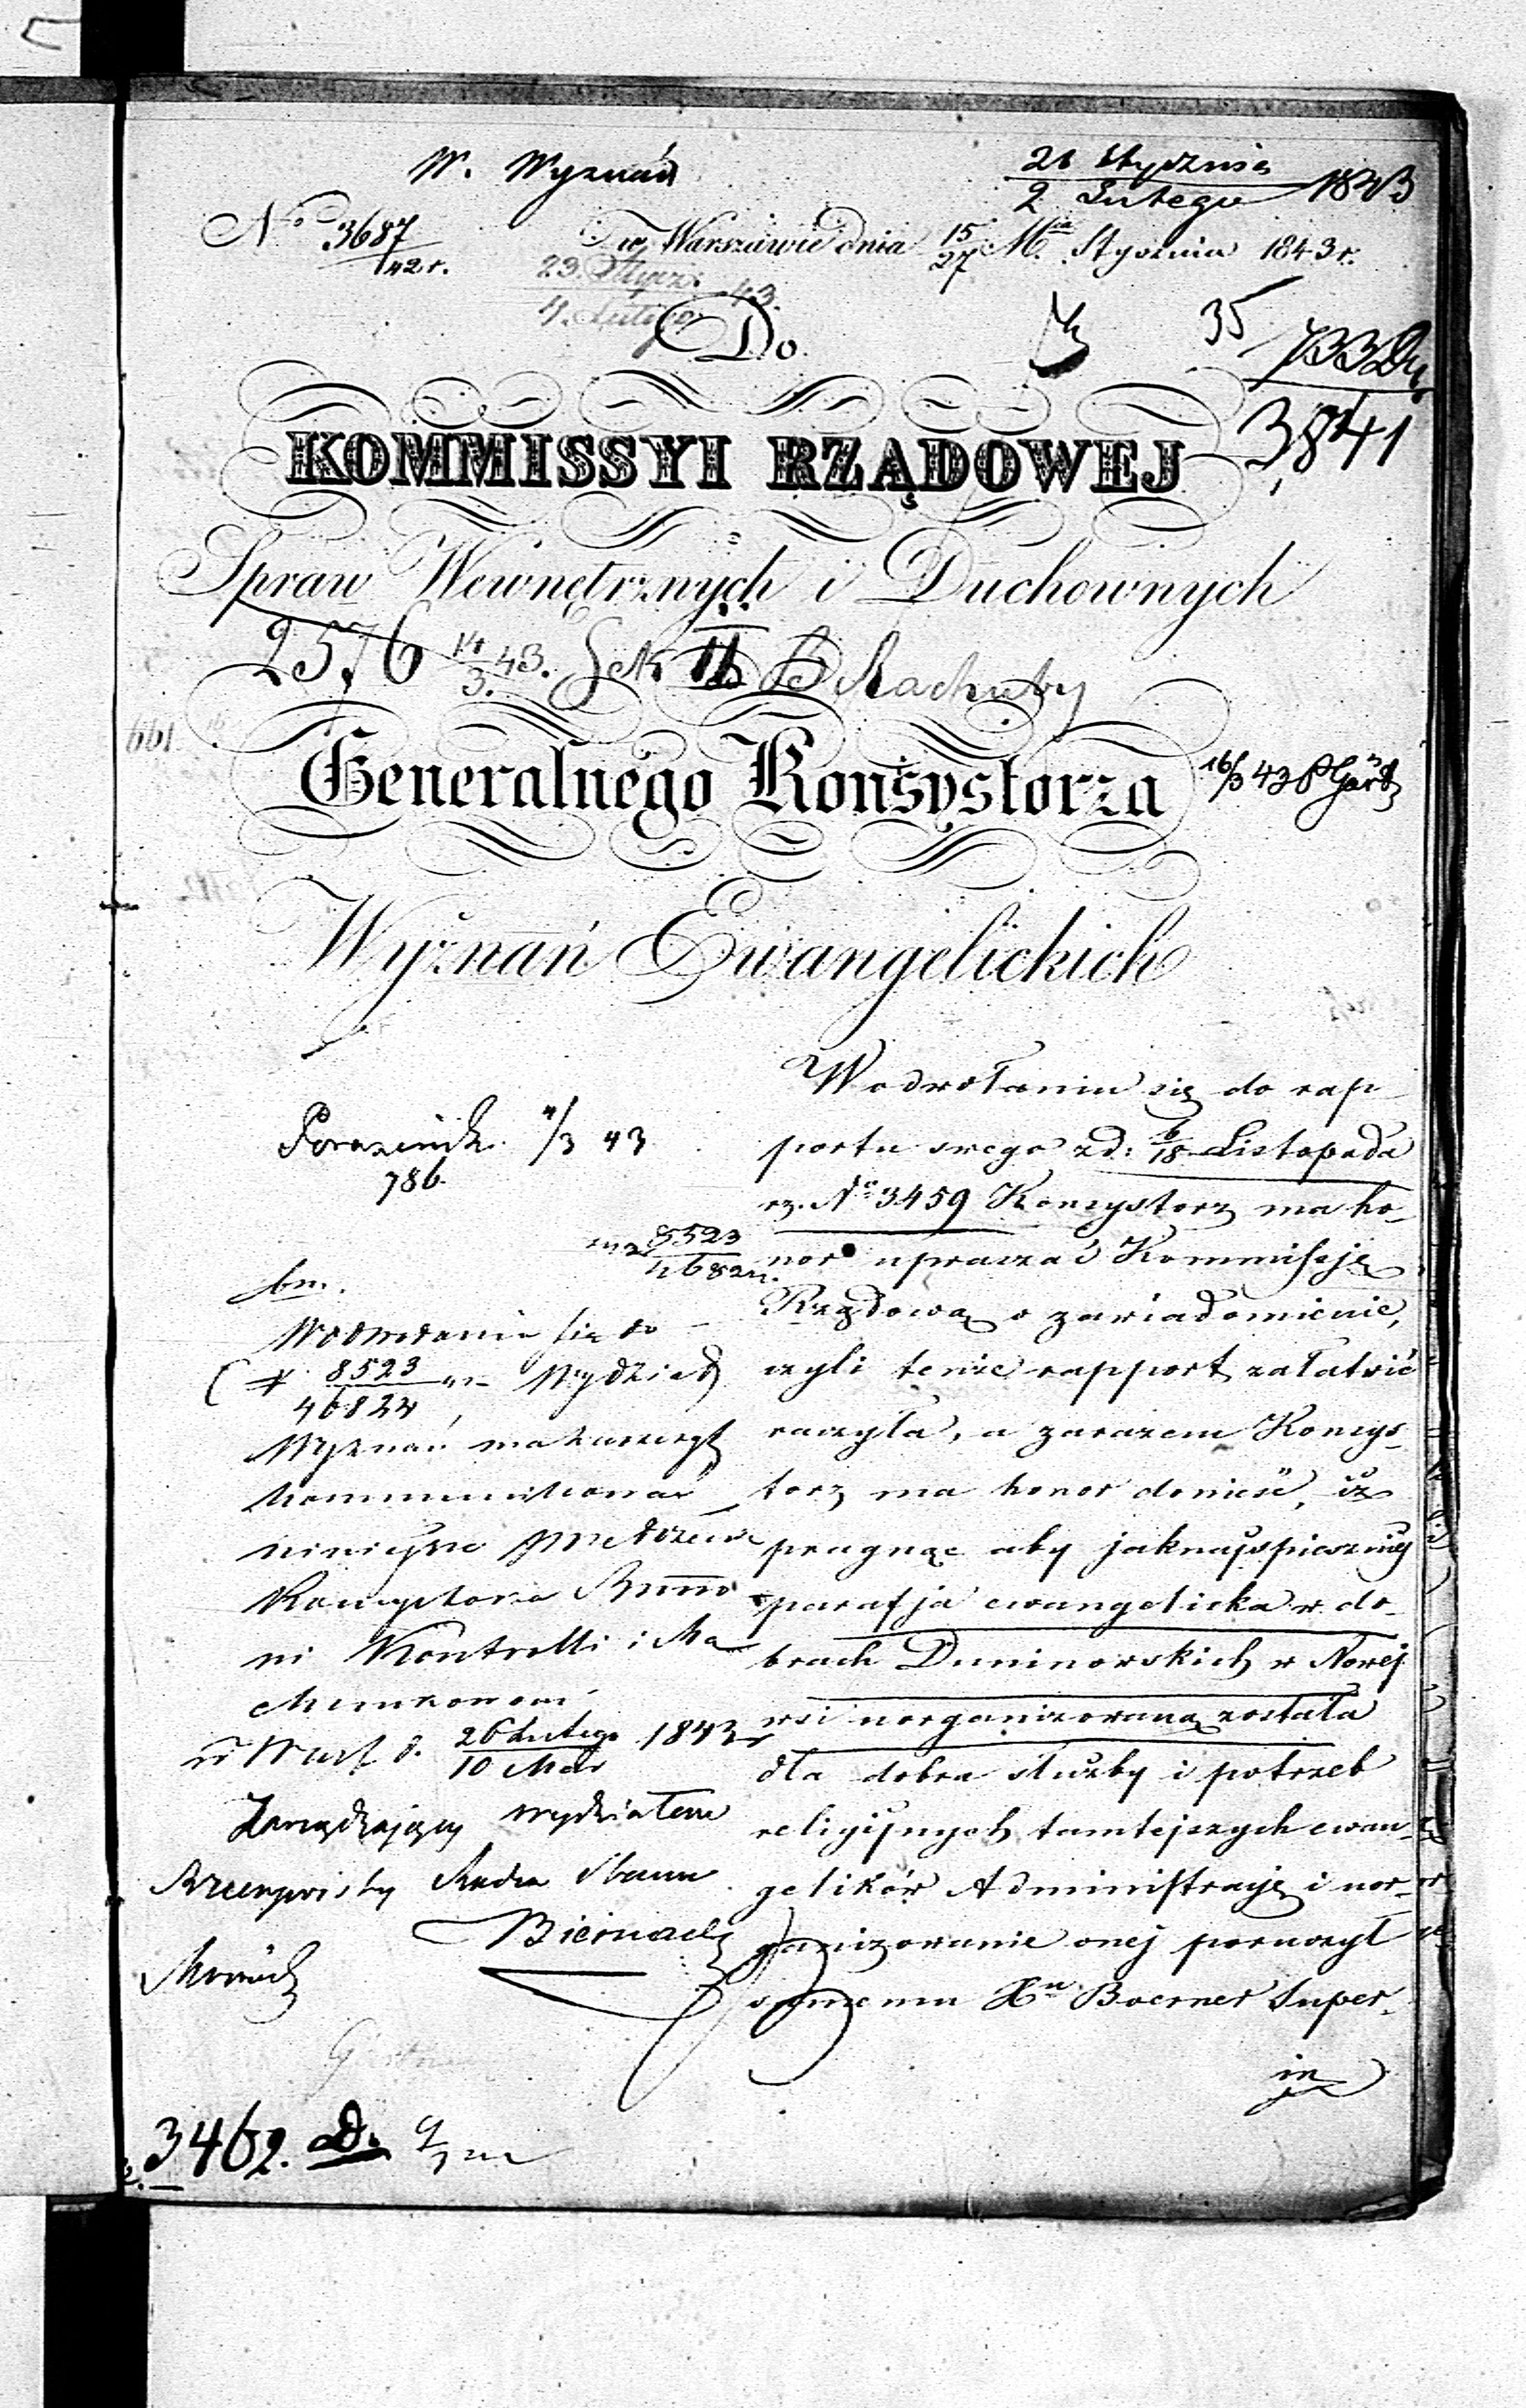 W. Wyznań
21 Stycznia
2 Lutego 1843
No 3687
42 r.
w Warszawie dnia 15/27 Mca Stycznia 1843 r.
23. Stycz.
4. Lutego 43.
Do
35
733
3841
KOMMISSYI RZĄDOWEJ
Spraw Wewnętrznych i Duchownych
2576 14/3. 43. Sek II
Generalnego Konsystorza
16/3 43
Wyznań Ewangelickich
W odwołaniu się do rap-
portu swego z d: 6/18 Listopada
rz. No 3459 Konsystorz ma ho-
nor upraszać Kommissję
Rządową o zawiadomienie,
czyli tenże rapport załatwić
raczyła, a zarazem Konsys-
torz ma honor donieść, iż
pragnąc aby jaknajspieszniej
parafja ewangelicka w do-
brach Duninowskich w Nowej
wsi uorganizowaną została
dla dobra służby i potrzeb
religijnych tamtejszych ewan-
gelików Administracje i uor-
ganizowanie onej poruczył
samemu Xdu Boerner Super-
in
4/3 43
786
8523
46824
bm.
W odwołaniu się do
8523
46824 Wydział
Wyznań ma zaszczyt
kommunikować
niniejsze
Konsystorza
ni Kontrolli i Ra
chunkowości
w Warsz. d. 26 Lutego
10 Mar 1843 r
Zarządzający Wydziałem
Rzeczywisty Radca Stanu
Biernacki
3462. D.